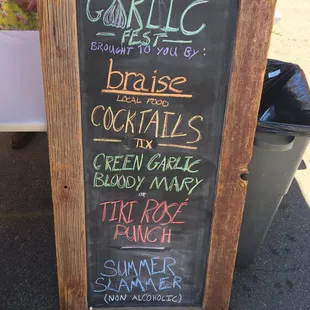 GARLIC
FEST
BROUGHT TO YOU BY:
braise
LOCAL FOOD
COCKTAILS
TIX
GREEN GARLIC
BLOODY MARY
or
TIKI ROSÉ
PUNCH
SUMMER
SLAMMER
(NON ALCOHOLIC)